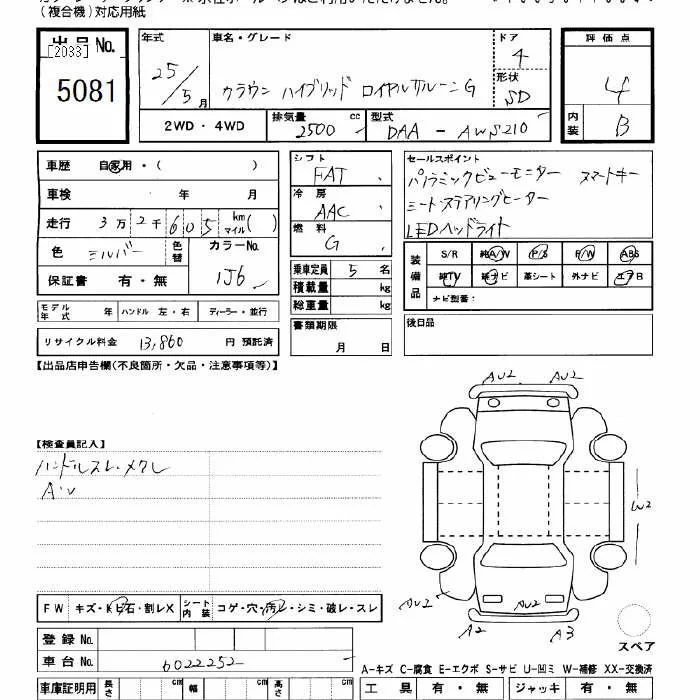 (複合機)対応用紙
出品No.
[2033]
5081
年式
25/5月
車名・グレード
クラウン ハイブリッド ロイヤルサルーンG
ドア
4
形状
SD
評価点
4
内装
B
2WD・4WD
排気量
2500 cc
型式
DAA - AWS210
車歴 自家用・( )
車検 年 月
走行 3万2千605 km マイル( )
色 シルバー 色替 カラーNo. 1J6
保証書 有・無
モデル年式 年 ハンドル 左・右 ディーラー・並行
リサイクル料金 13,860 円 預託済
シフト
FAT
冷房
AAC
燃料
G
乗車定員 5 名
積載量 kg
総重量 kg
書類期限
月 日
セールスポイント
パノラミックビューモニター スマートキー
シートステアリングヒーター
LEDヘッドライト
装備品
S/R 純A/W P/S P/W ABS
純TV 純ナビ 革シート 外ナビ エアB
ナビ型番:
後日品
【出品店申告欄(不良箇所・欠品・注意事項等)】
【検査員記入】
ハンドルスレ・メクレ
A・U
AU2 AU2
W2
AU2 AU2 AU2
A2 A3
スペア
FW キズ・飛石・割レX シート内装 コゲ・穴・汚レ・シミ・破レ・スレ
登録No.
車台No. 6022252
A-キズ C-腐食 E-エクボ S-サビ U-凹ミ W-補修 XX-交換済
車庫証明用 長さ cm 幅 cm 高さ cm
工具 有・無 ジャッキ 有・無